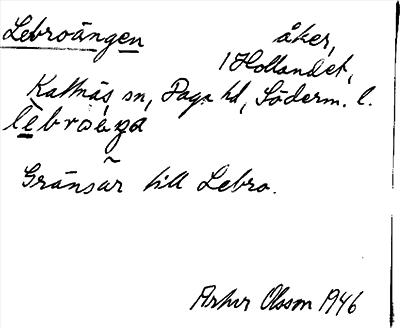 Lebroängen åker,
1 Hollandet,
Kattnäs sn, Daga hd, Söderm. l.
lèbroäŋa
Gränsar till Lebro.
Arthur Olsson 1946